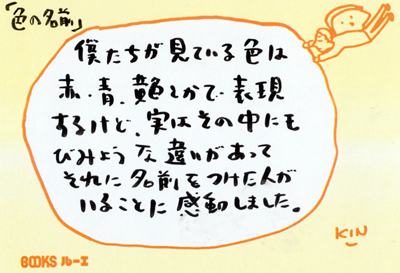 「色の名前」
僕たちが見ている色は
赤・青、黄色とかで表現
するけど、実はその中にも
びみょうな違いがあって
それに名前をつけた人が
いることに感動しました。
KIN
BOOKS ルーエ